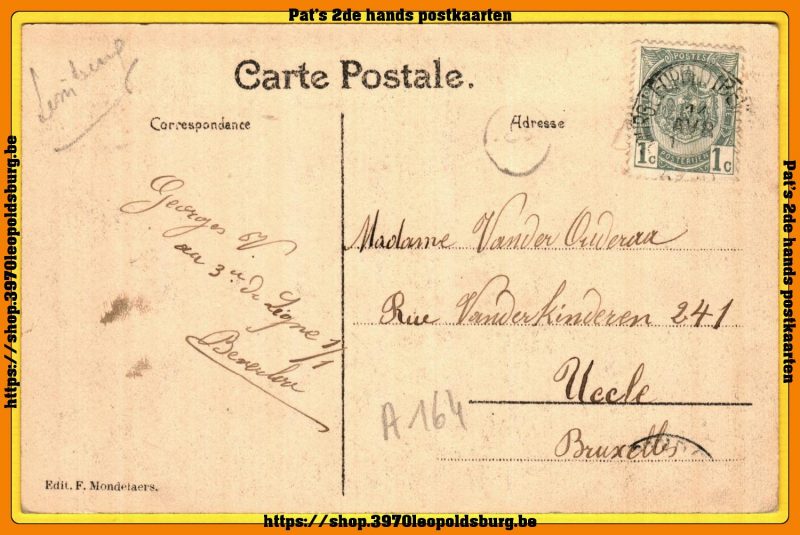 Pat's 2de hands postkaarten
Limburg
Carte Postale.
Correspondance
Adresse
POSTES
1c 1c
POSTERIJEN
14
AVR
Georges V.
au 3e de Ligne 1/1
Beverloo
Madame Vander Ouderaa
Rue Vanderkinderen 241
Uccle
Bruxelles
A 164
Edit. F. Mondelaers.
https://shop.3970leopoldsburg.be
https://shop.3970leopoldsburg.be
Pat's 2de hands postkaarten